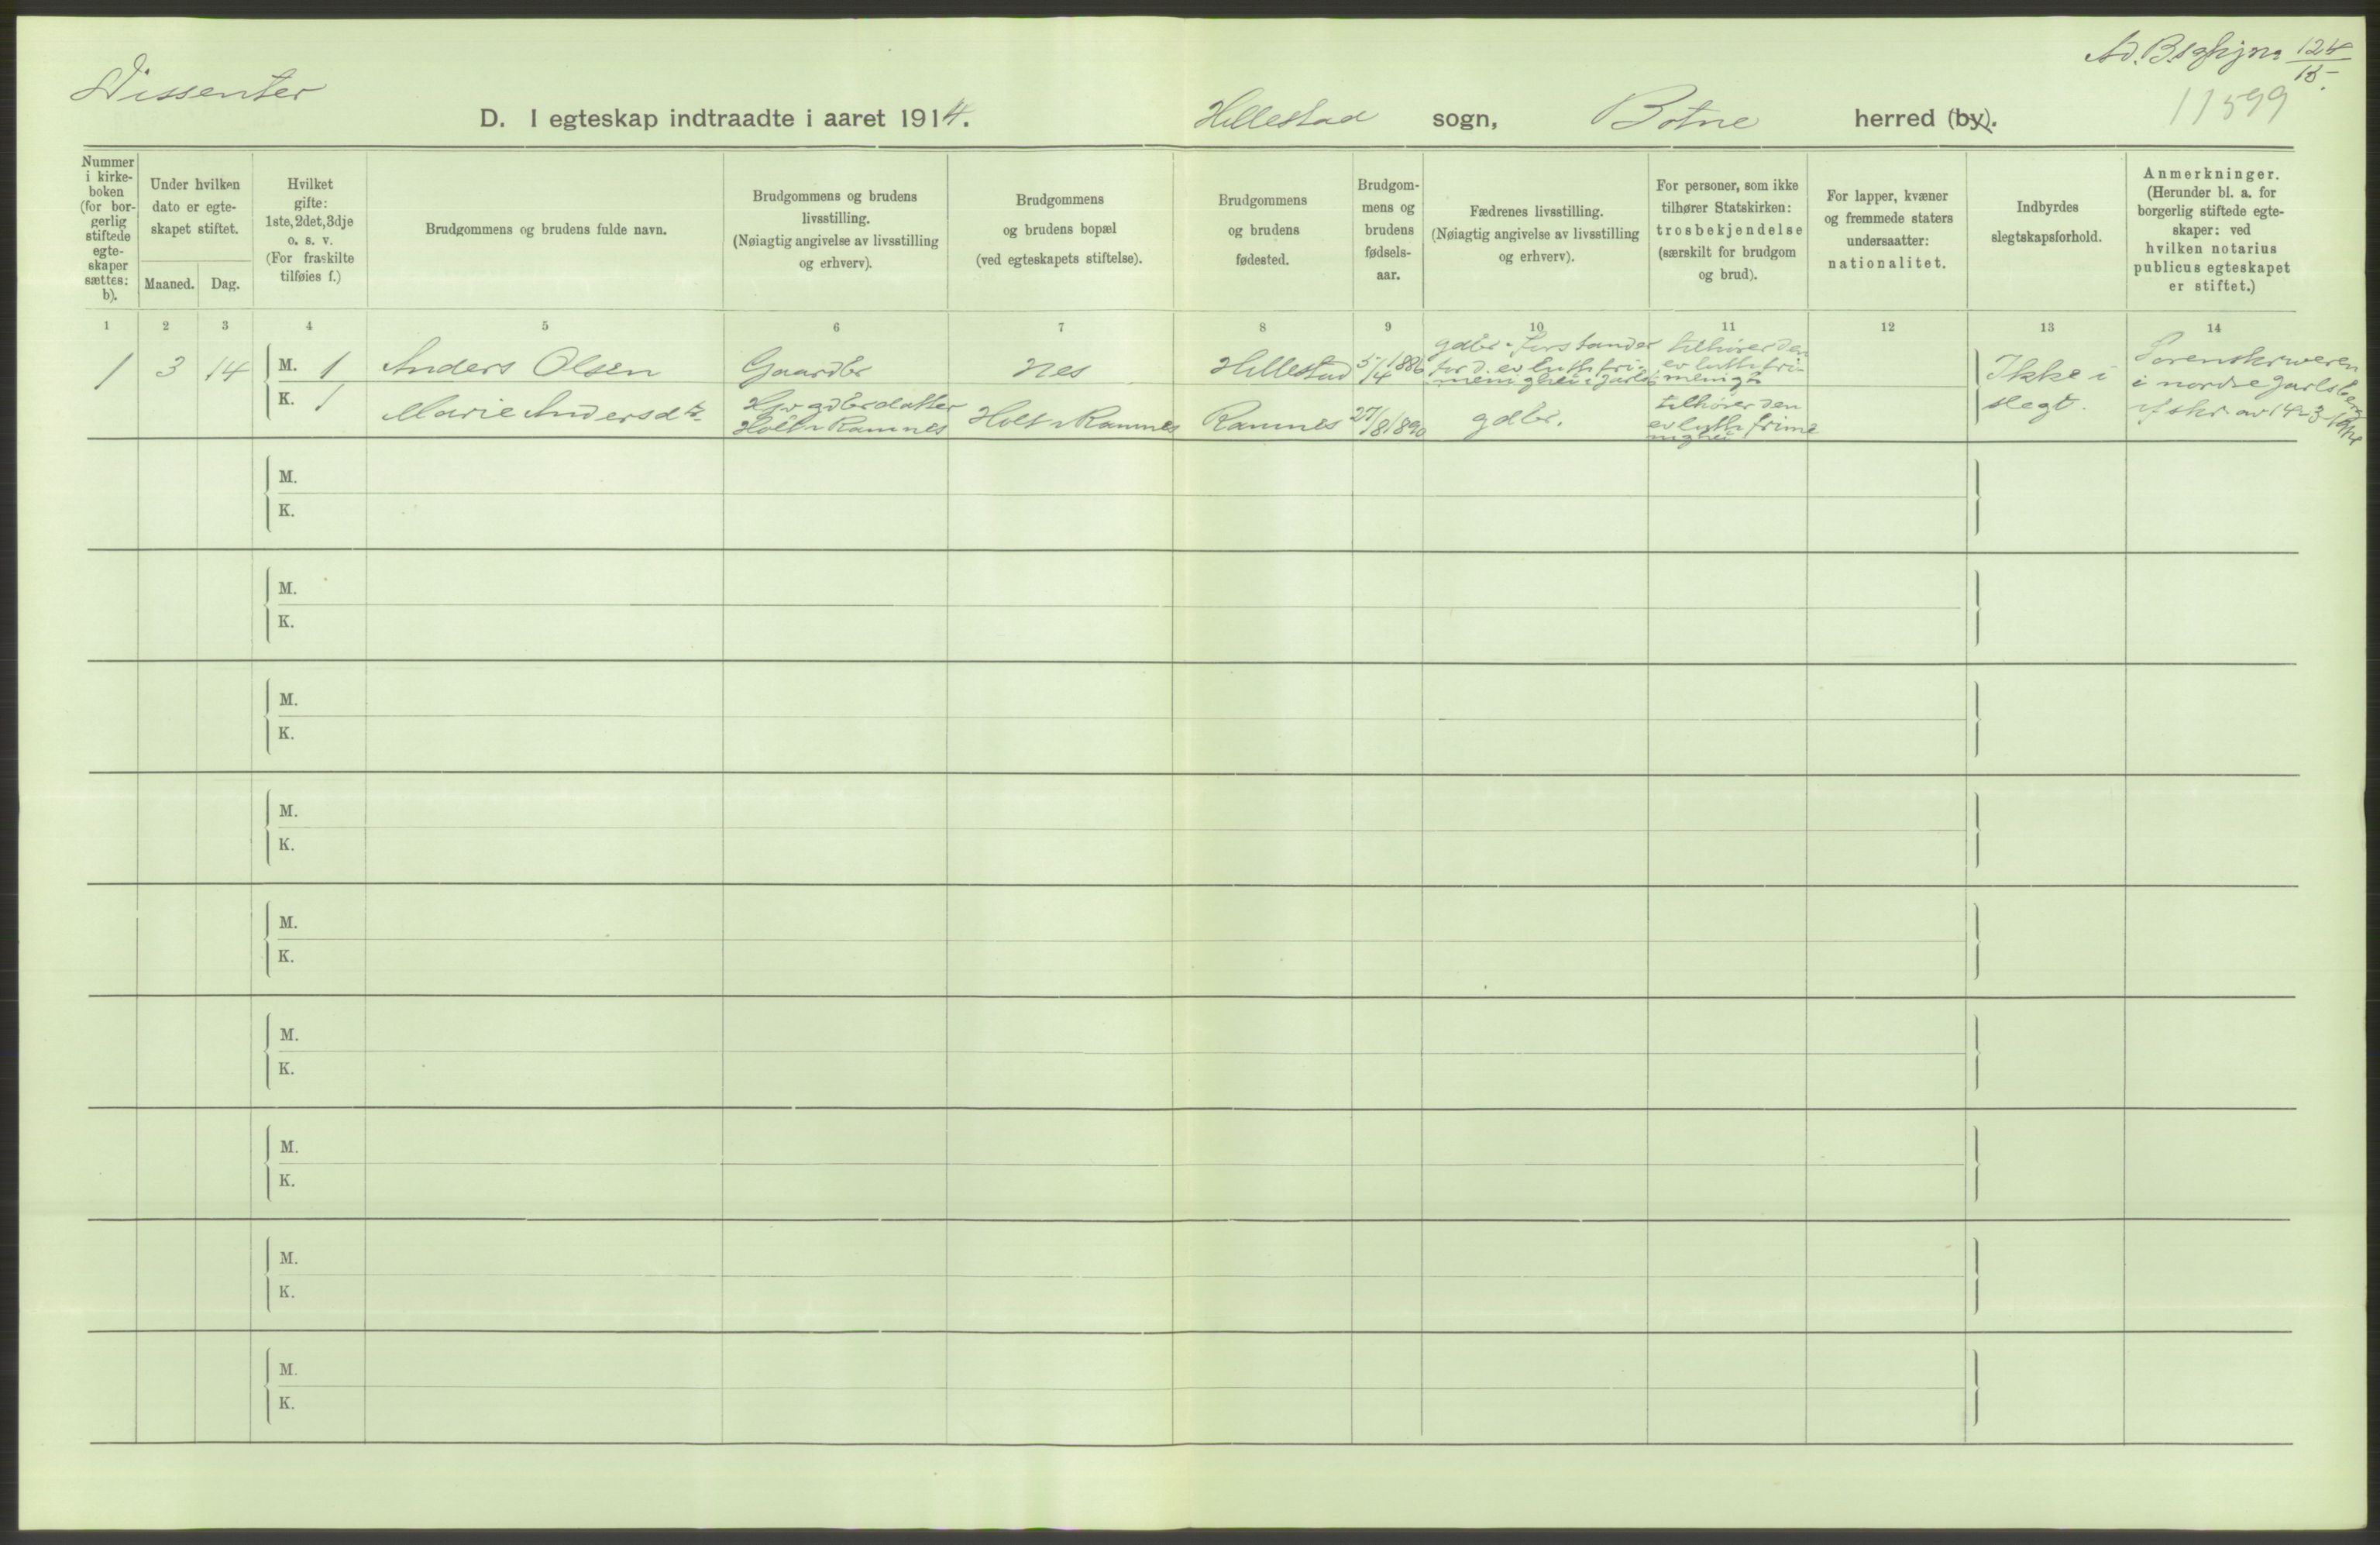 Dissenter
124
15-
11599
D. I egteskap indtraadte i aaret 1914. Hillestad sogn, Botne herred (by).
Nummer i kirke-boken (for bor-gerlig stiftede egte-skaper sættes: b).
Under hvilken dato er egte-skapet stiftet.
Maaned. Dag.
Hvilket gifte: 1ste, 2det, 3dje o. s. v. (For fraskilte tilføies f.)
Brudgommens og brudens fulde navn.
Brudgommens og brudens livsstilling. (Nøiagtig angivelse av livsstilling og erhverv).
Brudgommens og brudens bopæl (ved egteskapets stiftelse).
Brudgommens og brudens fødested.
Brudgom-mens og brudens fødsels-aar.
Fædrenes livsstilling. (Nøiagtig angivelse av livsstilling og erhverv).
For personer, som ikke tilhører Statskirken: trosbekjendelse (særskilt for brudgom og brud).
For lapper, kvæner og fremmede staters undersaatter: nationalitet.
Indbyrdes slegtskapsforhold.
Anmerkninger. (Herunder bl. a. for borgerlig stiftede egte-skaper: ved hvilken notarius publicus egteskapet er stiftet.)
1 2 3 4 5 6 7 8 9 10 11 12 13 14
1 3 14 M. 1 Anders Olsen Gaardbr Nes Hillestad 5/4 1886
gdbr. Forstander
for d. ev luth fri-
menighet i Jarlsb
tilhører den
ev luth fri-
menigh
K. 1 Marie Andersdtr
gdbrdatter
Holt Ramnes
Holt Ramnes Ramnes 27/8 1890 gdbr.
tilhører den
ev luth frime
nighet
Ikke i
slegt.
Sorenskriveren
i nordre Jarlsberg
skr. av 14-3-1914
M.
K.
M.
K.
M.
K.
M.
K.
M.
K.
M.
K.
M.
K.
M.
K.
M.
K.